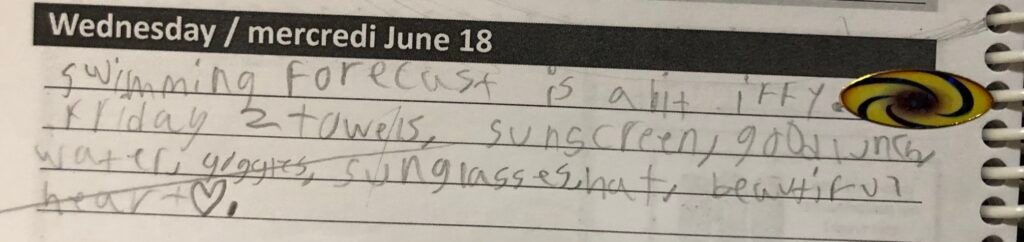 Wednesday / mercredi June 18
swimming Forecast is a bit iffy.
Friday 2 towels, sunscreen, good lunch,
water, giggles, sunglasses, hat, beautiful
heart♡.